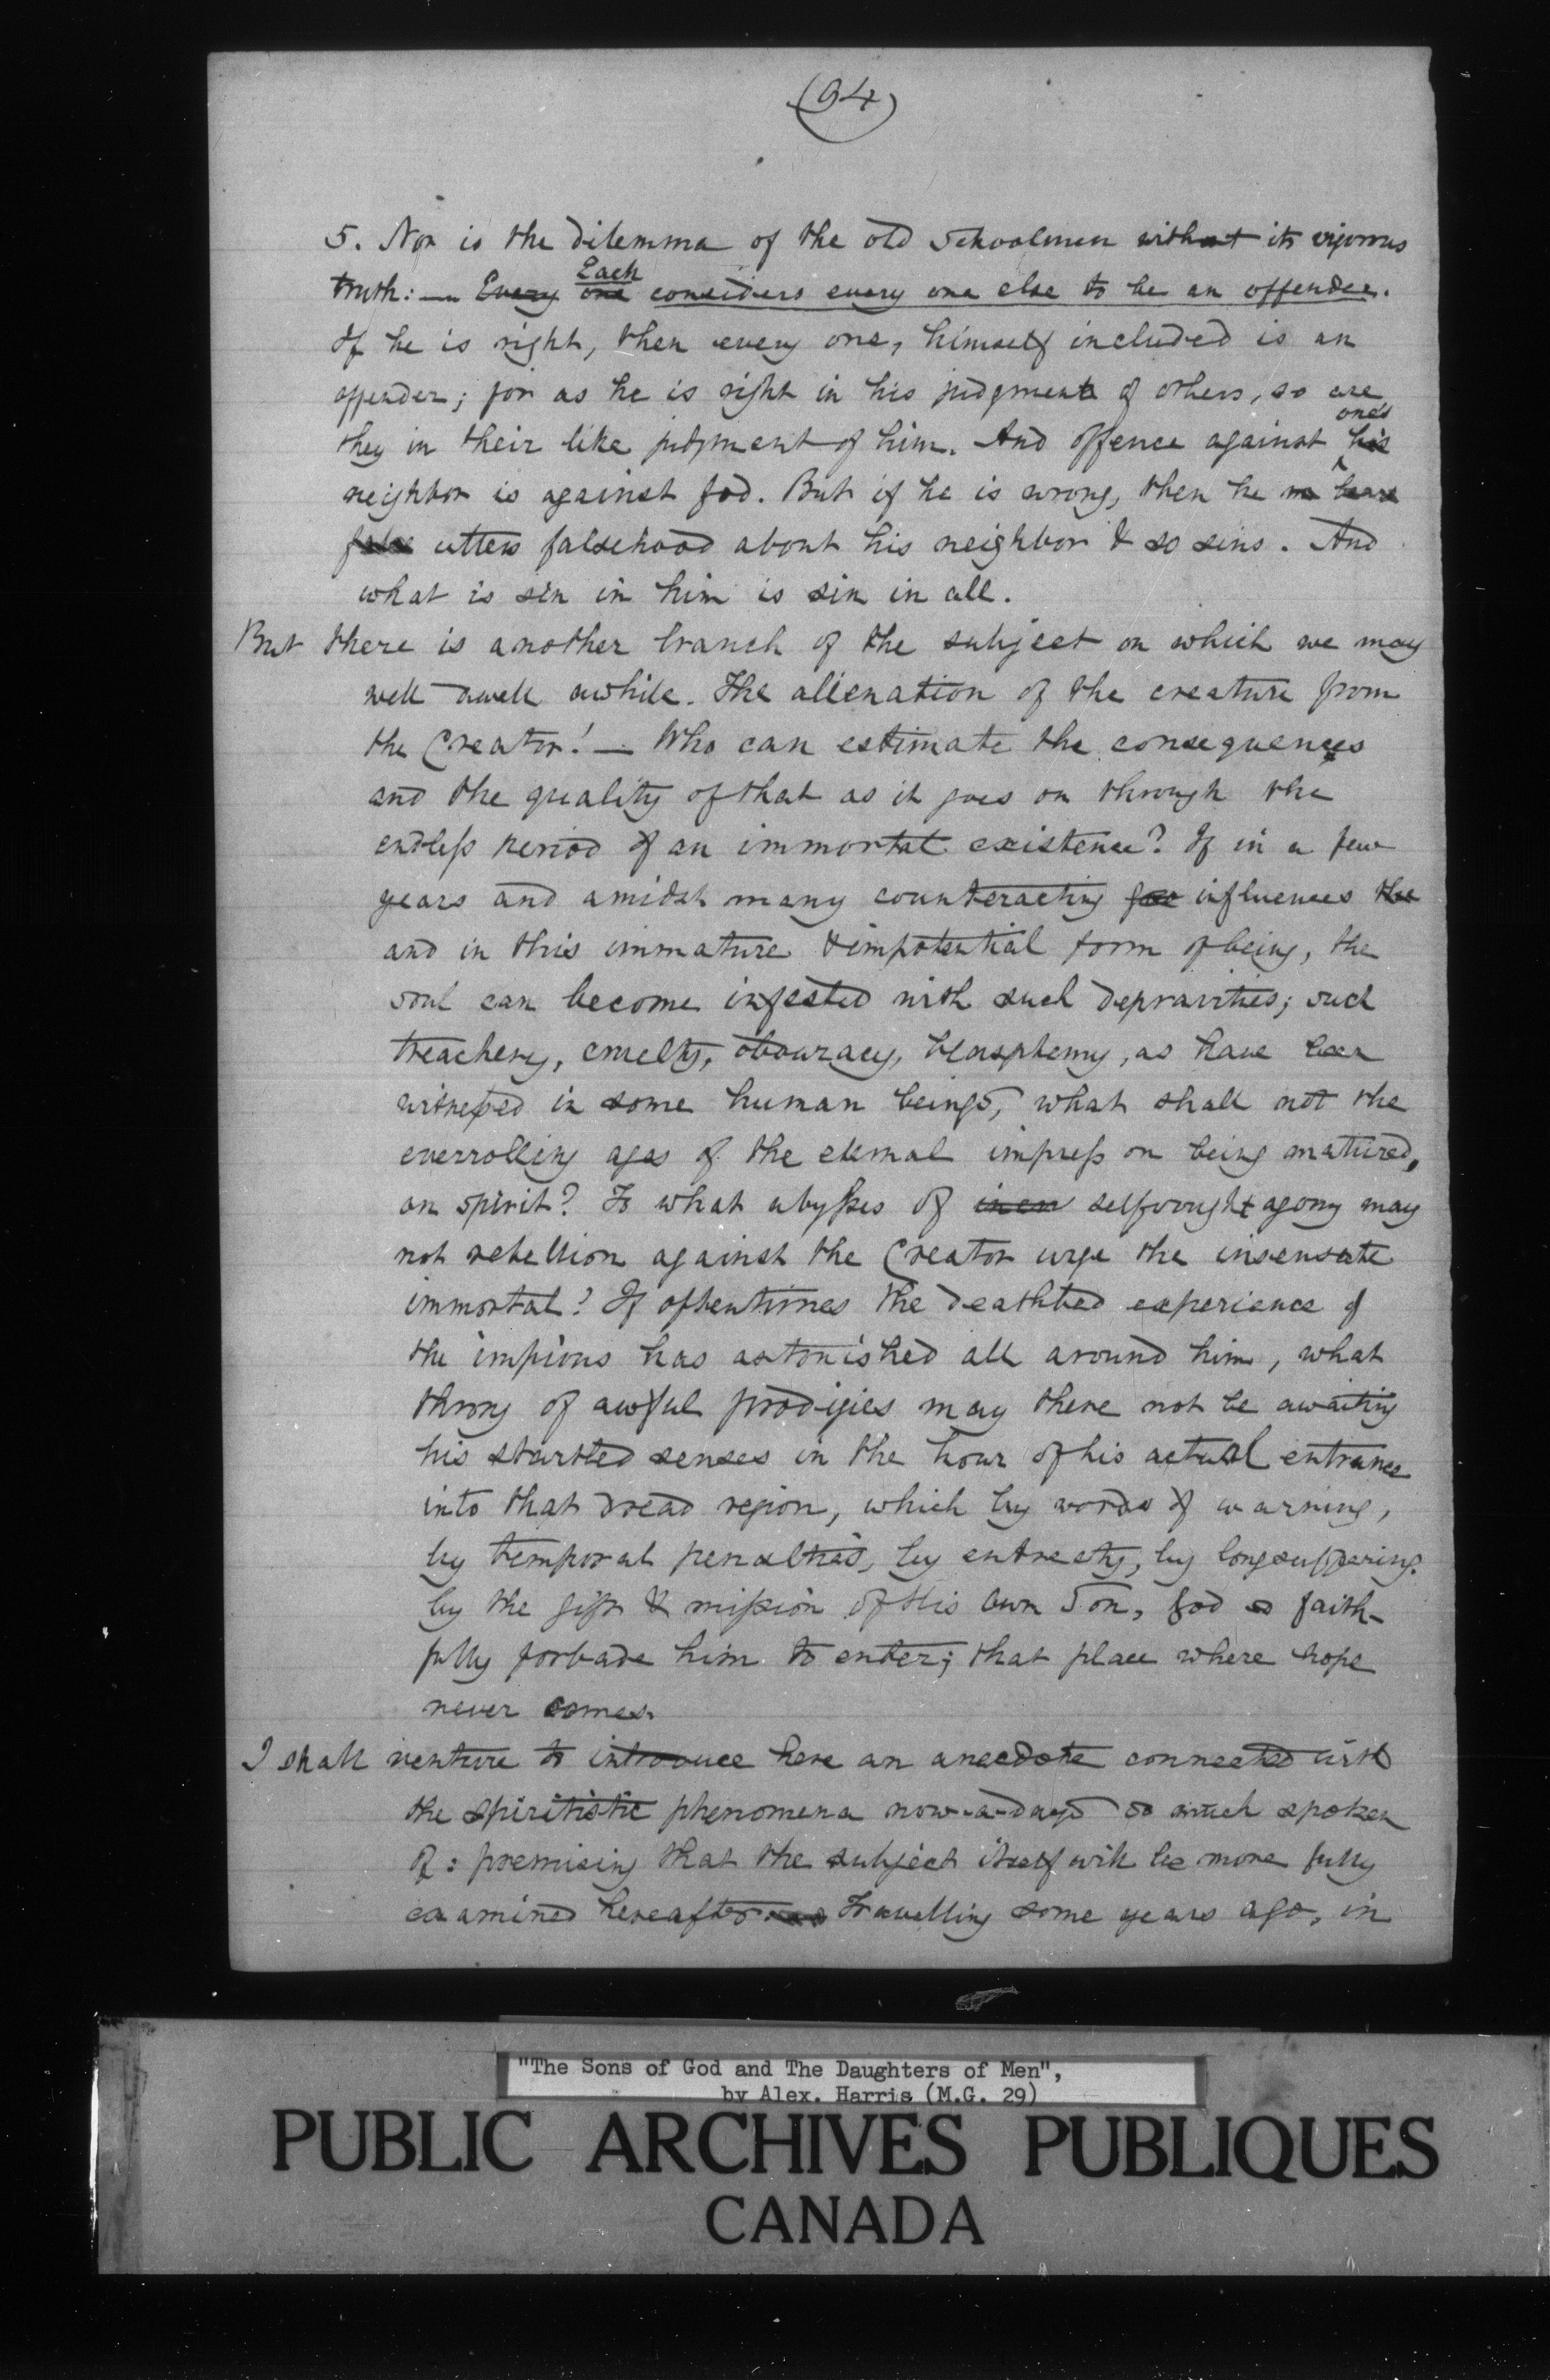 (94)
5. Nor is the dilemma of the old Schoolmen without its vigorous
truth: — Every one Each considers every one else to be an offender.
If he is right, then every one, himself included is an
offender; for as he is right in his judgment of others, so are
they in their like judgment of him. And offence against his one's
neighbor is against God. But if he is wrong, then he bears
false utters falsehood about his neighbor & so sins. And
what is sin in him is sin in all.
But there is another branch of the subject on which we may
well dwell awhile. The alienation of the creature from
the Creator! — Who can estimate the consequences
and the quality of that as it goes on through the
endless period of an immortal existence? If in a few
years and amidst many counteracting influences the
and in this immature & impotential form of being, the
soul can become infested with such depravities; such
treachery, cruelty, obduracy, blasphemy, as have been
witnessed in some human beings, what shall not the
everrolling ages of the eternal impress on being matured,
on spirit? To what abysses of selfwrought agony may
not rebellion against the Creator urge the insensate
immortal? If oftentimes the deathbed experience of
the impious has astonished all around him, what
throng of awful prodigies may there not be awaiting
his startled senses in the hour of his actual entrance
into that dread region, which by words of warning,
by temporal penalties, by entreaty, by longsuffering.
by the gift & mission of His own Son, God so faith-
fully forbade him to enter; that place where hope
never comes.
I shall venture to introduce here an anecdote connected with
the spiritistic phenomena now-a-days so much spoken
of: premising that the subject itself will be more fully
examined hereafter Travelling some years ago, in
"The Sons of God and The Daughters of Men",
by Alex. Harris (M.G. 29)
PUBLIC ARCHIVES PUBLIQUES
CANADA